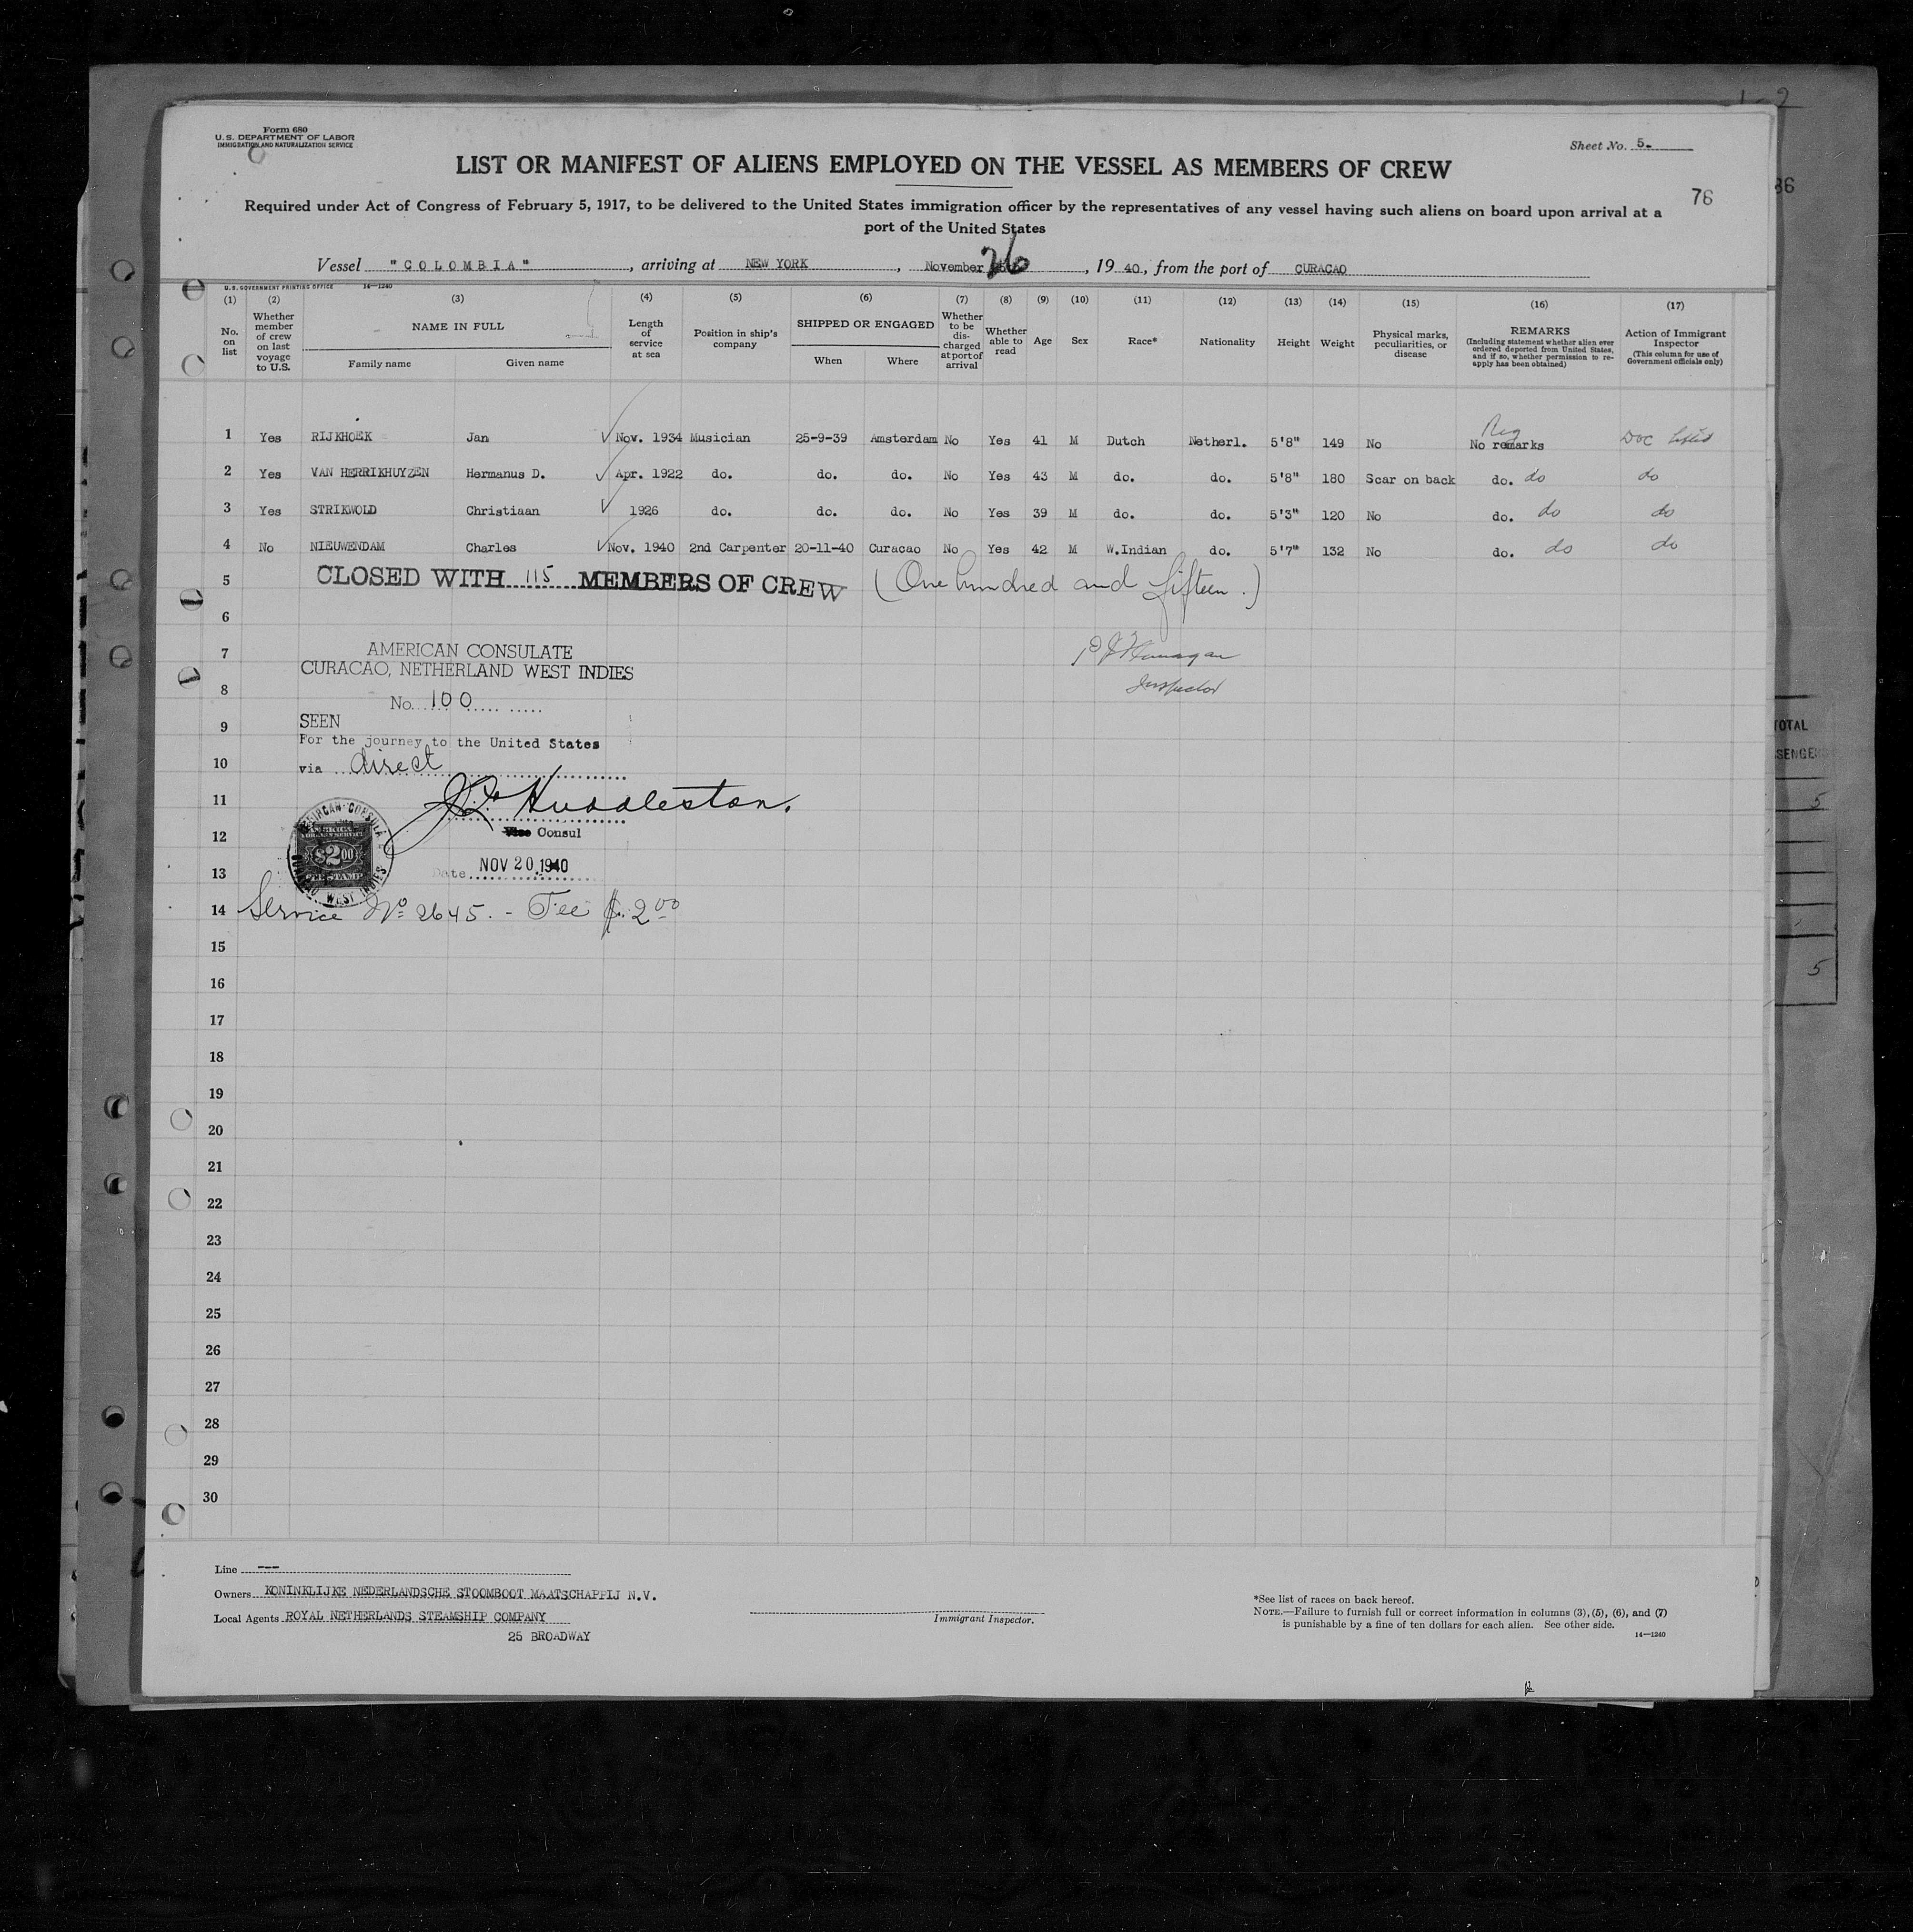 Form 680
U. S. DEPARTMENT OF LABOR
IMMIGRATION AND NATURALIZATION SERVICE
Sheet No. 5-
LIST OR MANIFEST OF ALIENS EMPLOYED ON THE VESSEL AS MEMBERS OF CREW
76
86
Required under Act of Congress of February 5, 1917, to be delivered to the United States immigration officer by the representatives of any vessel having such aliens on board upon arrival at a
port of the United States
Vessel "COLOMBIA", arriving at NEW YORK, November 26, 1940, from the port of CURACAO
U. S. GOVERNMENT PRINTING OFFICE 14—1240
(1) No. on list
(2) Whether member of crew on last voyage to U.S.
(3) NAME IN FULL
Family name
Given name
(4) Length of service at sea
(5) Position in ship's company
(6) SHIPPED OR ENGAGED
When
Where
(7) Whether to be discharged at port of arrival
(8) Whether able to read
(9) Age
(10) Sex
(11) Race*
(12) Nationality
(13) Height
(14) Weight
(15) Physical marks, peculiarities, or disease
(16) REMARKS
(Including statement whether alien ever ordered deported from United States, and if so, whether permission to re-apply has been obtained)
(17) Action of Immigrant Inspector
(This column for use of Government officials only)
Reg
1 Yes RIJKHOEK Jan Nov. 1934 Musician 25-9-39 Amsterdam No Yes 41 M Dutch Netherl. 5'8" 149 No No remarks Doc lifted
2 Yes VAN HERRIKHUYZEN Hermanus D. Apr. 1922 do. do. do. No Yes 43 M do. do. 5'8" 180 Scar on back do. do do
3 Yes STRIKWOLD Christiaan 1926 do. do. do. No Yes 39 M do. do. 5'3" 120 No do. do do
4 No NIEUWENDAM Charles Nov. 1940 2nd Carpenter 20-11-40 Curacao No Yes 42 M W.Indian do. 5'7" 132 No do. do do
5 CLOSED WITH 115 MEMBERS OF CREW (One hundred and fifteen.)
6
7 AMERICAN CONSULATE
CURACAO, NETHERLAND WEST INDIES
Flanagan
Inspector
8
No. 100
SEEN
9
For the journey to the United States
10
via direct
11
Huddleston.
12
Vice Consul
AMERICAN CONSULATE
WEST INDIES
$2.00
FEE STAMP
13
Date NOV 20 1940
14 Service No 2645. - Fee $. 2 00
15
16
17
18
19
20
21
22
23
24
25
26
27
28
29
30
TOTAL
5
5
Line ---
Owners KONINKLIJKE NEDERLANDSCHE STOOMBOOT MAATSCHAPPIJ N.V.
Local Agents ROYAL NETHERLANDS STEAMSHIP COMPANY
25 BROADWAY
Immigrant Inspector.
*See list of races on back hereof.
NOTE.—Failure to furnish full or correct information in columns (3), (5), (6), and (7)
is punishable by a fine of ten dollars for each alien. See other side.
14—1240